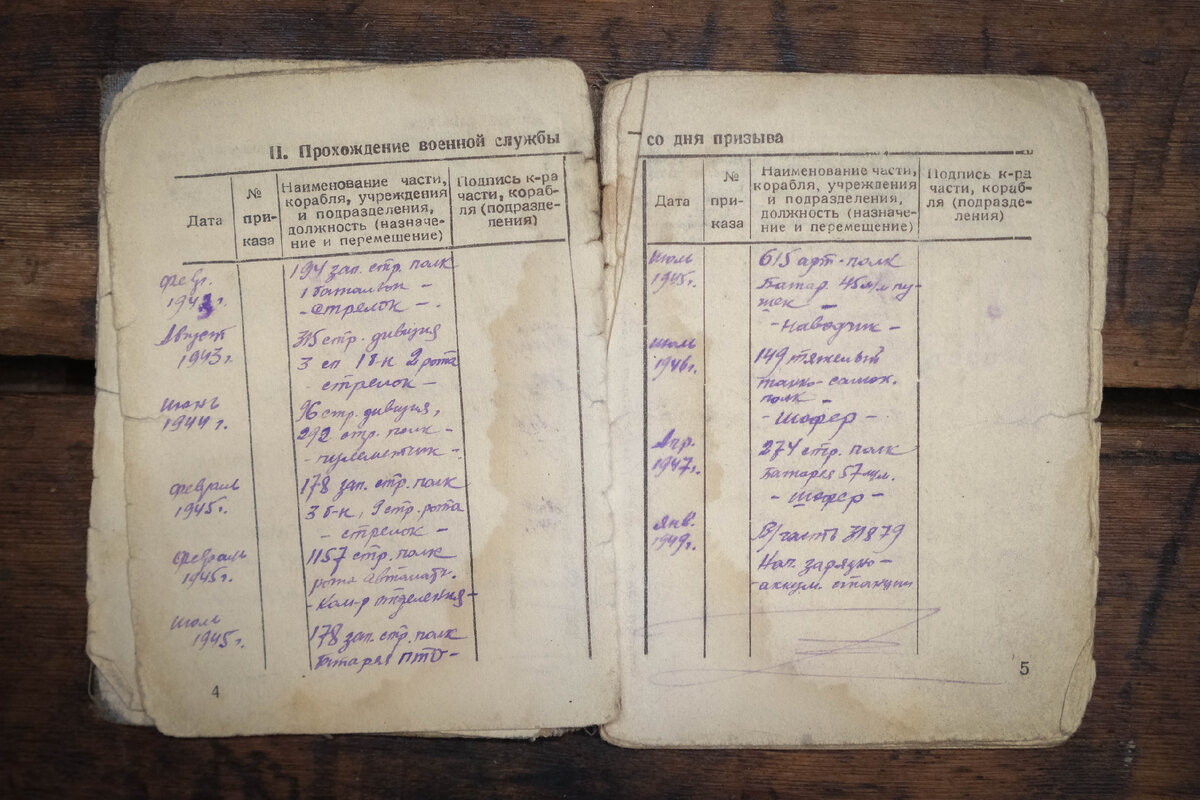 II. Прохождение военной службы
Дата
№
при-
каза
Наименование части,
корабля, учреждения
и подразделения,
должность (назначе-
ние и перемещение)
Подпись к-ра
части, кораб-
ля (подразде-
ления)
февр.
1943 г.
194 зап. стр. полк
1 батальон -
- стрелок -
Август
1943 г.
315 стр. дивизия
3 сп 1 б-н 2 рота
- стрелок -
июнь
1944 г.
96 стр. дивизия,
292 стр. полк -
- пулеметчик -
февраль
1945 г.
178 зап. стр. полк
3 б-н, 9 стр. рота
- стрелок -
февраль
1945 г.
1157 стр. полк
рота автоматч.
- ком-р отделения -
июль
1945 г.
178 зап. стр. полк
батарея ПТО -
4
со дня призыва
Дата
№
при-
каза
Наименование части,
корабля, учреждения
и подразделения,
должность (назначе-
ние и перемещение)
Подпись к-ра
части, кораб-
ля (подразде-
ления)
июль
1945 г.
615 арт. полк
Батар. 45 м/м пу-
шек -
- наводчик -
июль
1946 г.
149 тяжелый
танко-самох.
полк -
- шофер -
Апр.
1947 г.
274 стр. полк
Батарея 57 м/м.
- шофер -
янв.
1949 г.
В/часть 31879
Нач. зарядно-
- аккум. станции
5